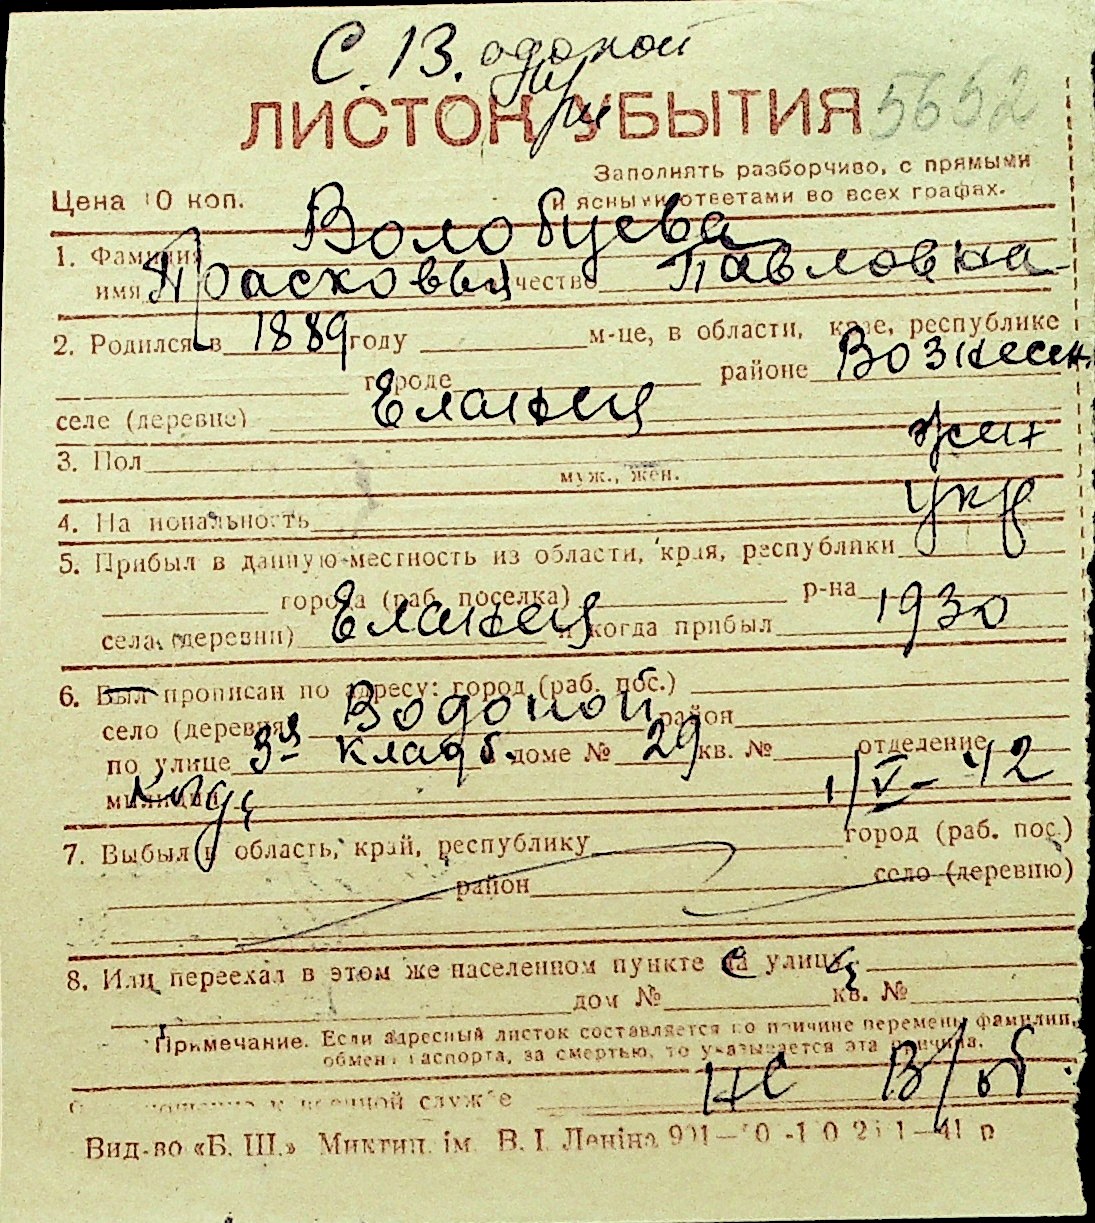 С. В. одопой
ЛИСТОК УБЫТИЯ 5652
Заполнять разборчиво, с прямыми
Цена 10 коп. и ясными ответами во всех графах.
Волобуева
1. Фамилия
имя Прасковья отчество Павловна
2. Родился в 1889 году м-це, в области, крае, республике
городе районе Вознесен.
селе (деревне) Еланец
3. Пол жен
муж., жен.
4. Национальность укр
5. Прибыл в данную местность из области, края, республики
города (раб. поселка) р-на
села (деревни) Еланец и когда прибыл 1930
6. Был прописан по адресу: город (раб. пос.)
село (деревня) Водопой район
по улице 3я кладб. доме № 29 кв. № отделение
милиции 1/V-42
7. Выбыл в область, край, республику город (раб. пос.)
район село (деревню)
8. Или переехал в этом же населенном пункте на улицу
дом № кв. №
Примечание. Если адресный листок составляется по причине перемены фамилии,
обмена паспорта, за смертью, то указывается эта причина.
отношение к военной службе н/с в/об.
Вид-во «Б. Ш.» Миктип. ім. В. І. Леніна